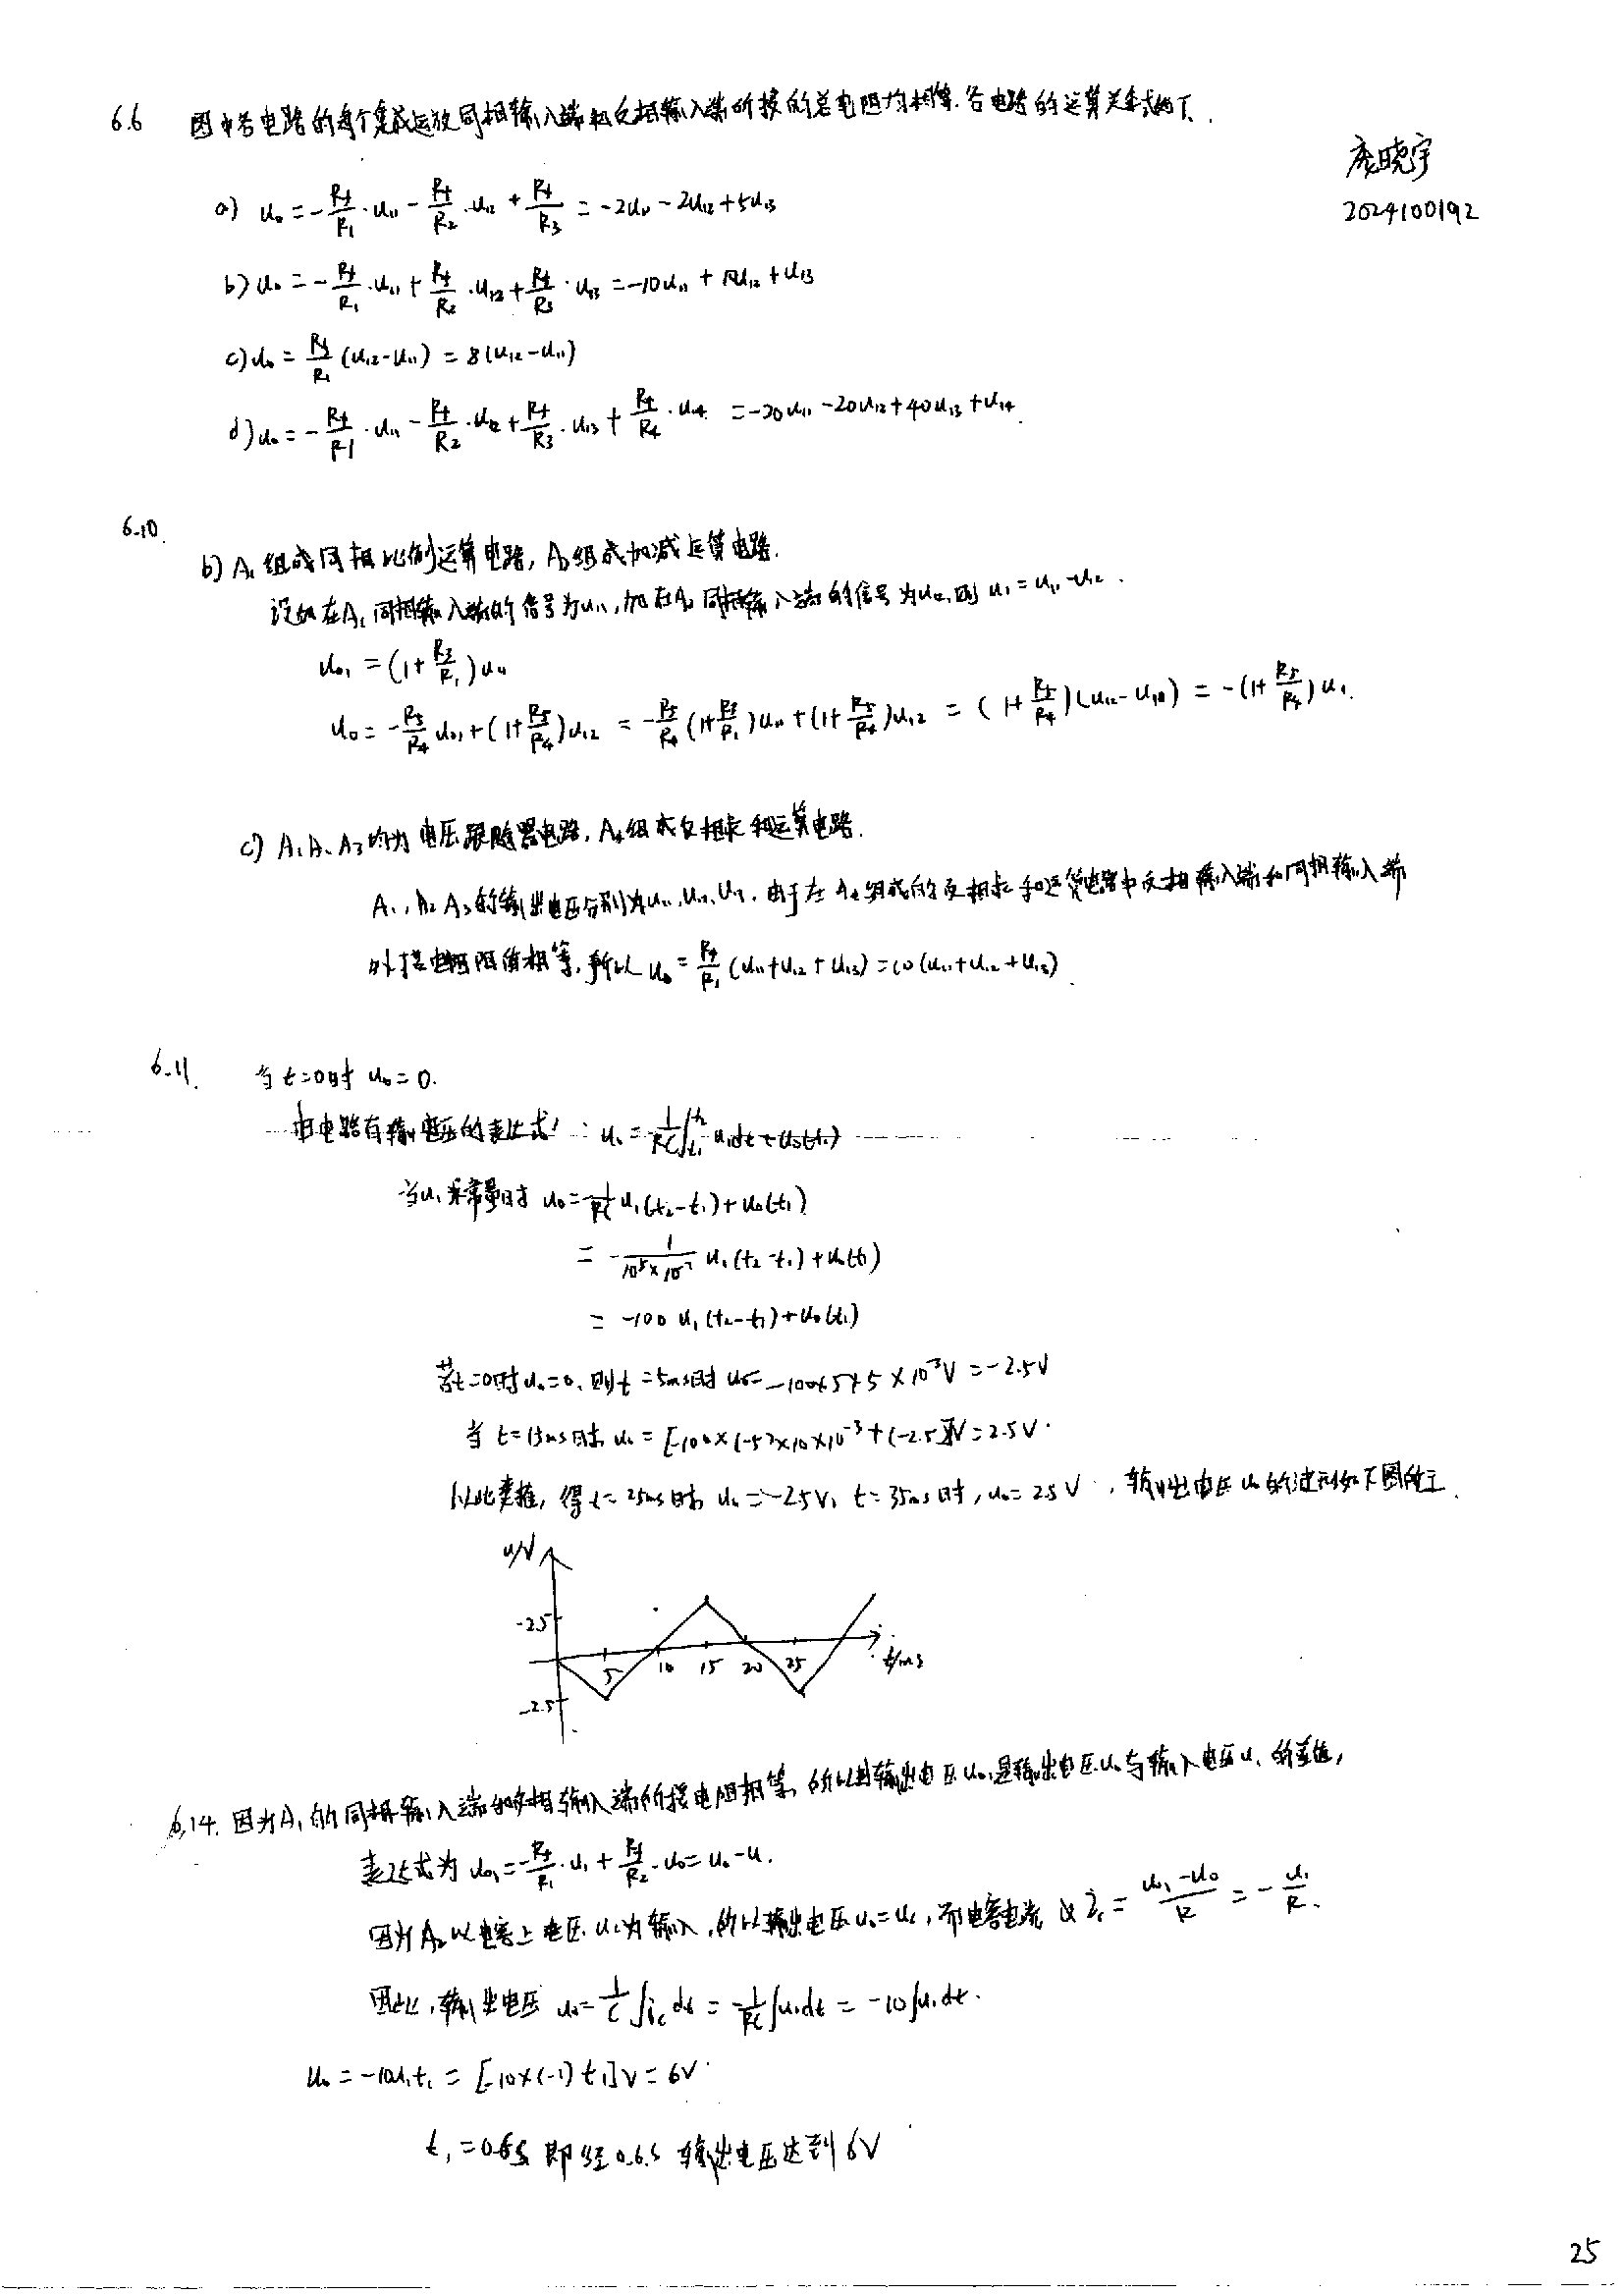 6.6 图中各电路的每个集成运放同相输入端和反相输入端所接的总电阻均相等.各电路的运算关系式如下.
庞晓宇
2024100192
a) u₀ = -Rf/R₁·u₁₁ - Rf/R₂·u₁₂ + Rf/R₃ = -2u₁₁ - 2u₁₂ + 5u₁₃
b) u₀ = -Rf/R₁·u₁₁ + Rf/R₂·u₁₂ + Rf/R₃·u₁₃ = -10u₁₁ + 10u₁₂ + u₁₃
c) u₀ = Rf/R₁ (u₁₂-u₁₁) = 8(u₁₂-u₁₁)
d) u₀ = -Rf/R1·u₁₁ - Rf/R₂·u₁₂ + Rf/R₃·u₁₃ + Rf/R₄·u₁₄ = -20u₁₁ - 20u₁₂ + 40u₁₃ + u₁₄.
6.10.
b) A₁组成同相比例运算电路, A₂组成加减运算电路.
设加在A₁同相输入端的信号为u₁₁,加在A₂同相输入端的信号为u₁₂,则 u₁ = u₁₁-u₁₂.
u₀₁ = (1+R₃/R₁)u₁₁
u₀ = -R₅/R₄ u₀₁ + (1+R₅/R₄)u₁₂ = -R₅/R₄ (1+R₃/R₁)u₁₁ + (1+R₅/R₄)u₁₂ = (1+R₅/R₄)(u₁₂-u₁₁) = -(1+R₅/R₄)u₁.
c) A₁A₂A₃均为电压跟随器电路, A₄组成反相求和运算电路.
A₁, A₂ A₃的输出电压分别为u₁₁,u₁₂,u₁₃. 由于在A₄组成的反相求和运算电路中反相输入端和同相输入端
外接电阻阻值相等,所以 u₀ = Rf/R₁ (u₁₁+u₁₂+u₁₃) = 10(u₁₁+u₁₂+u₁₃).
6.11. 当t=0时 u₀=0.
由电路有输出电压的表达式: u₀ = -1/RC ∫ₜ₁ᵗ² u₁dt + u₀(t₁)
当u₁为常量时 u₀ = -1/RC u₁(t₂-t₁)+u₀(t₁)
= -1/(10⁵×10⁻⁷) u₁(t₂-t₁)+u₀(t₁)
= -100 u₁(t₂-t₁)+u₀(t₁)
若t=0时u₀=0,则t=5ms时 u₀= -100×5×5×10⁻³V = -2.5V
当 t=15ms时, u₀ = [-100×(-5)×10×10⁻³+(-2.5)]V = 2.5V.
以此类推, 得t=25ms时 u₀=-2.5V, t=35ms时, u₀=2.5V, 输出电压u₀的波形如下图所示.
u/V
-2.5
5 10 15 20 25 t/ms
-2.5
6.14. 因为A₁的同相输入端和反相输入端所接电阻相等,所以输出电压u₀₁是输出电压u₀与输入电压u₁的差值,
表达式为 u₀₁ = -Rf/R₁·u₁ + Rf/R₂·u₀ = u₀-u₁.
因为A₂以电容上电压u꜀为输入,所以输出电压u₀=u꜀,而电容电流 i꜀ = (u₀₁-u₀)/R = -u₁/R.
因此,输出电压 u₀ = 1/C ∫i꜀dt = -1/RC ∫u₁dt = -10∫u₁dt.
u₀ = -10u₁t₁ = [-10×(-1) t₁]V = 6V.
t₁ = 0.6s 即经0.6s 输出电压达到6V
25